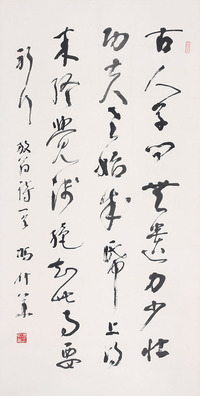 古人學问無遺力少壯
功夫老始成帋上得
来終覺淺絶知此事要
躬行 放翁詩